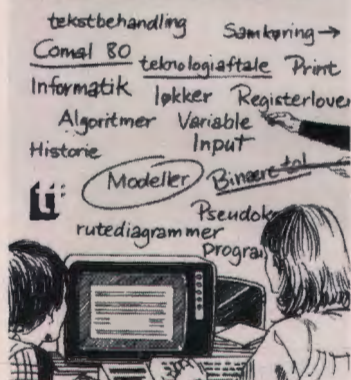 tekstbehandling
Samkøring →
Comal 80
teknologiaftale Print
Informatik løkker Registerlove
Algoritmer Variable
Historie Input
Modeller Binære tal
rutediagrammer